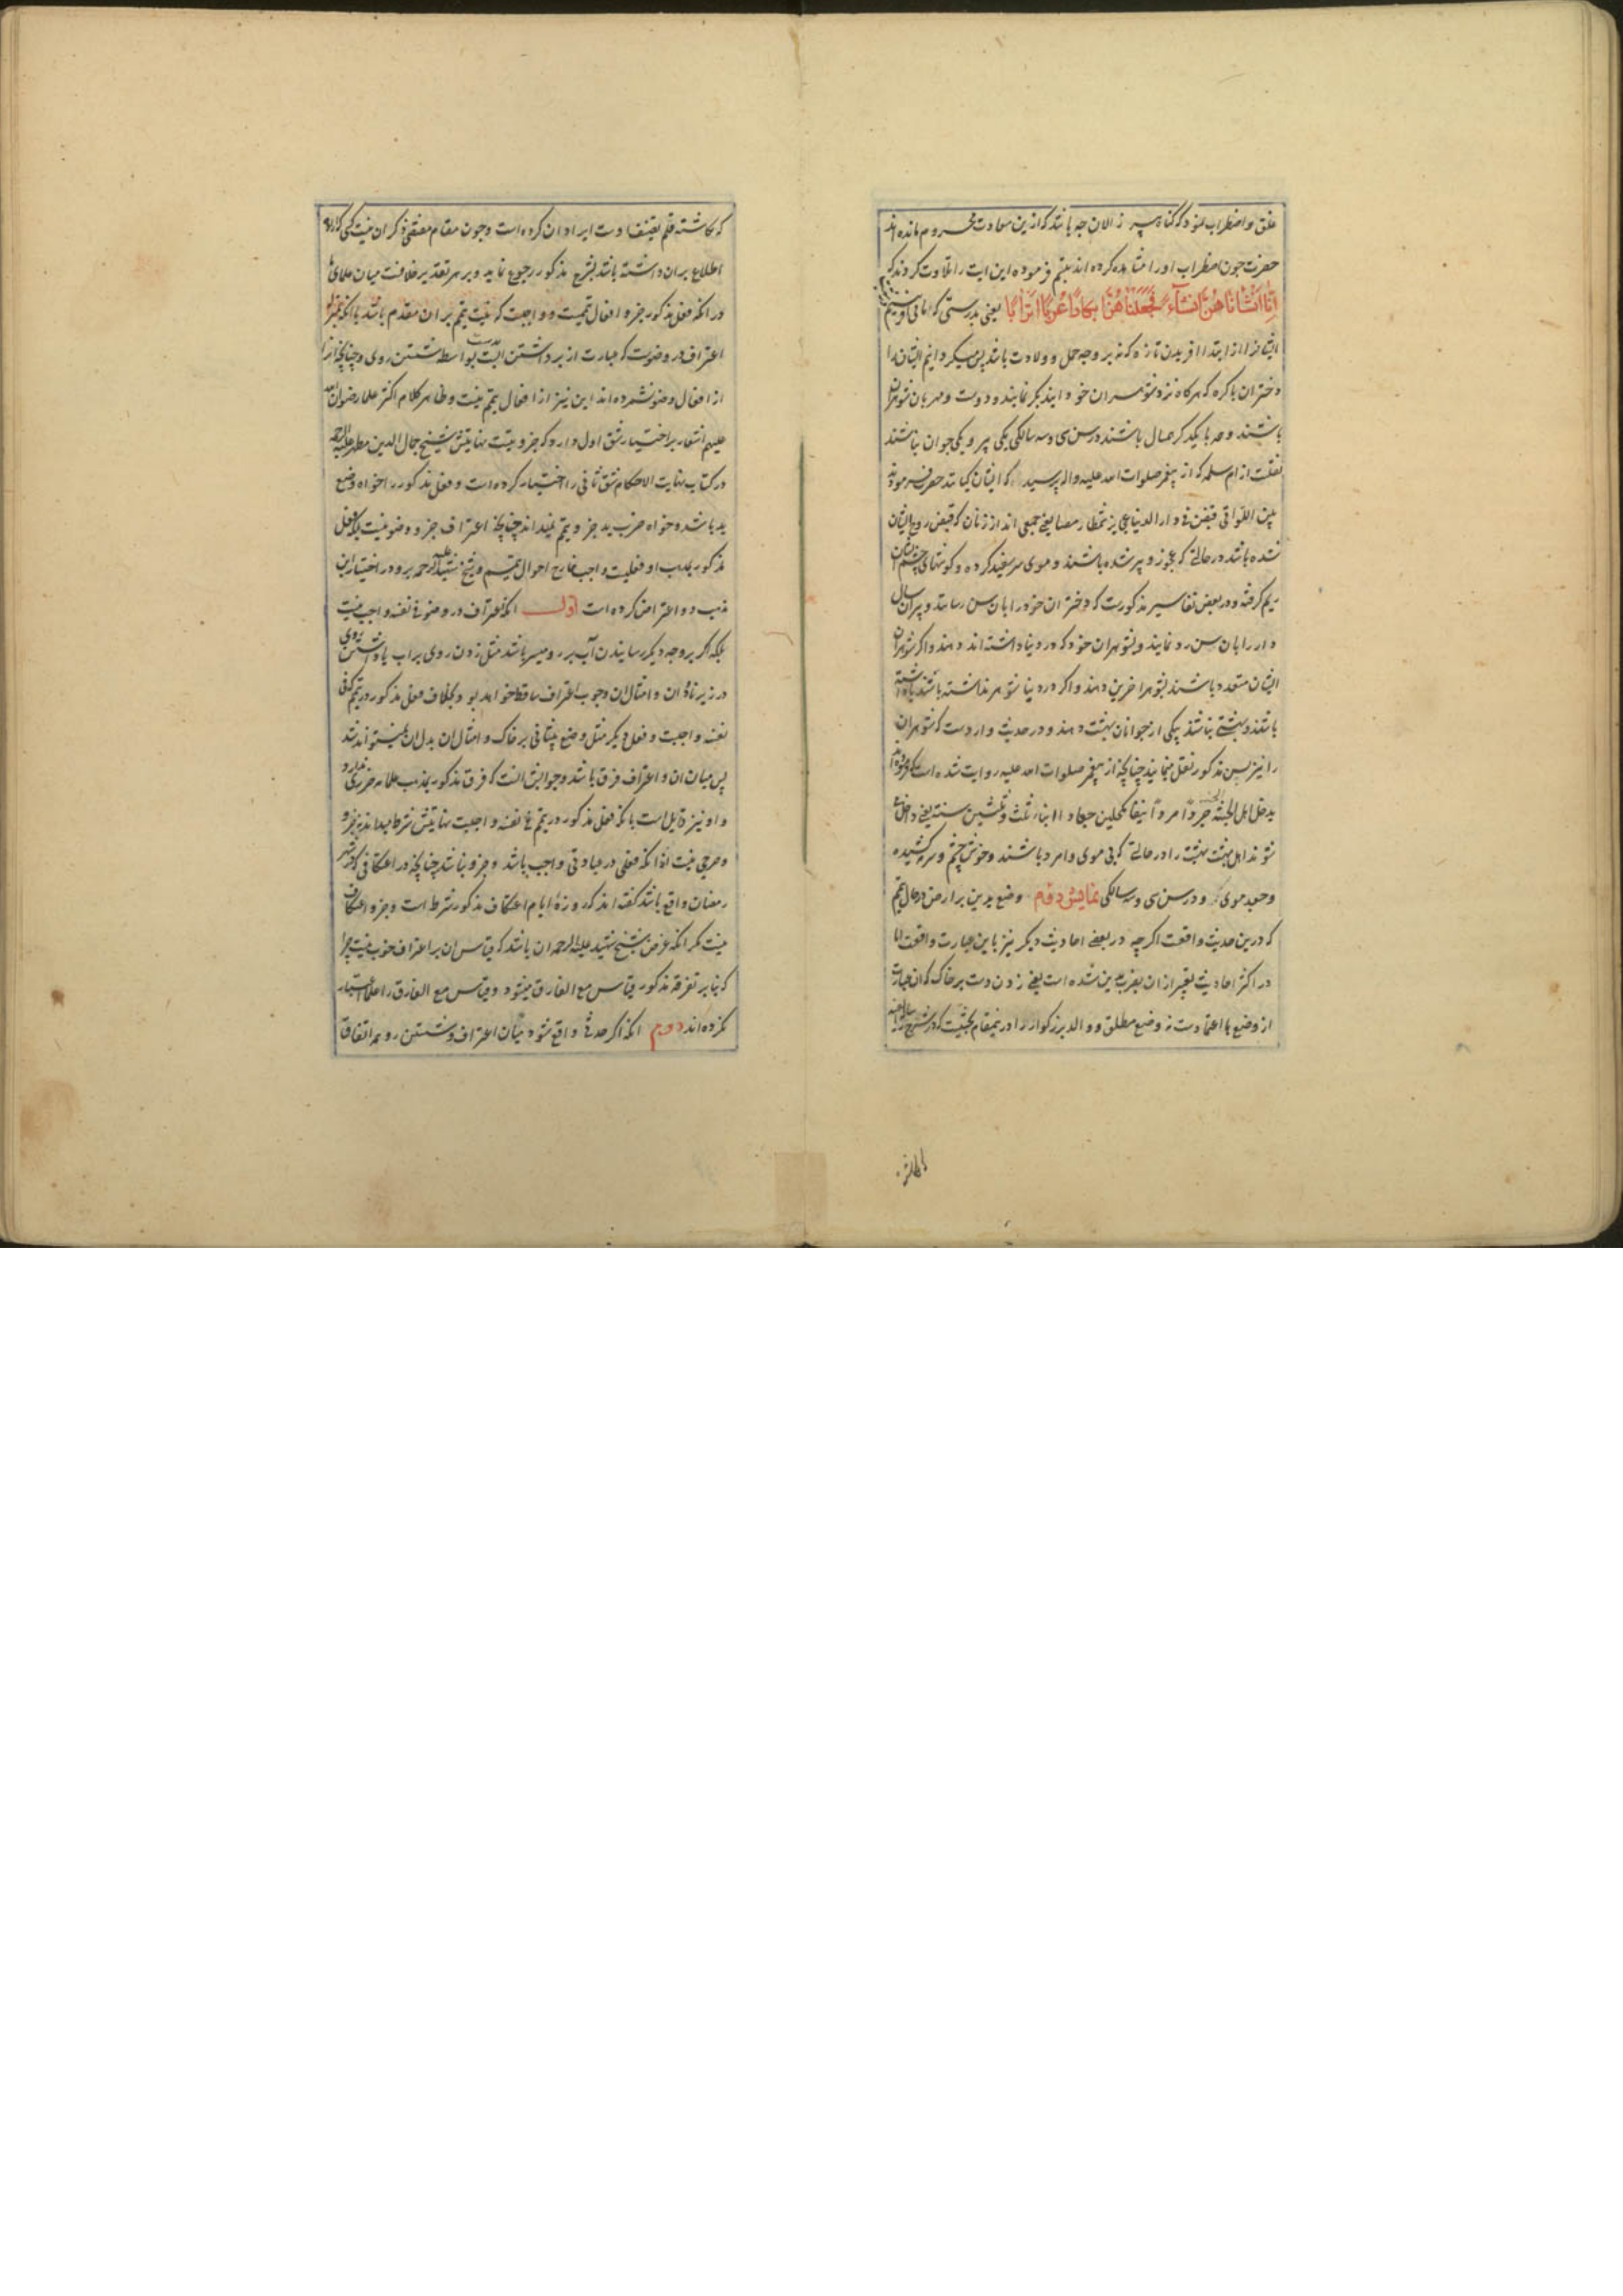 قلق و اضطراب نمود که گناه پیر زالان چه باشد که ازین سعادت محروم مانده اند
حضرت چون اضطراب او را مشاهده کرده اند تبسم فرموده این ایت را تلاوت کردند که
اِنّا اَنْشَأناهُنَّ اِنشاءً فَجَعَلْناهُنَّ اَبکاراً عُرُباً اَتراباً یعنی بدرستی که ما می افرینیم
ایشانرا از ابتدا افریدن تازه که نه بر وجه حمل و ولادت باشد پس میکردانیم ایشان را
دختران باکره که هرکاه نزد شوهران خود ایند بکر نمایند و دوست و مهربان شوهران
باشند و همه با یکدیکر همسال باشند در سن سی و سه سالکی یکی پیر و یکی جوان نباشند
نقلست از ام سلمه که از پیغمبر صلوات الله علیه و اله پرسید که ایشان کیانند حضرت فرمودند
هن اللواتی قبضن فی دار الدنیا عجایز شمطا رمصا یعنی جمعی اند از زنان که قبض روح ایشان
شده باشد در حالتی که عجوز و پیر شده باشند و موی سر سفید کرده و کوشهای چشم ایشان
ریم کرفته و در بعض تفاسیر مذکورست که دختران خورد را بان سن رسانند و پیران سال
دار را بان سن رد نمایند و بشوهران خود که در دنیا داشته اند دهند و اگر شوهران
ایشان متعدد باشند بشوهر اخرین دهند و اگر در دنیا شوهر نداشته باشند یا داشته
باشند و بهشتی نباشد بیکی از جوانان بهشت دهند و در حدیث واردست که شوهران
را نیز بسن مذکور نقل مینمایند چنانچه از پیغمبر صلوات الله علیه روایت شده است که فرمودند
یدخل اهل الجنة الجنة جردا مردا بیضا مکحلین جعادا ابناء ثلث و ثلثین سنة یعنی داخل
شوند اهل بهشت بهشت را در حالتی که بی موی و امرد باشند و خوش چشم و سرمه کشیده
و جعد موی و در سن سی و سه سالکی نمایش دوم وضع یدین بر ارض در حال تیمم
که درین حدیث واقعست اگرچه در بعضی احادیث دیکر نیز باین عبارت واقعست اما
در اکثر احادیث تعبیر ازان بضرب یدین شده است یعنی زدن دست بر خاک که ان عبارت
از وضع با اعتمادست نه وضع مطلق و والد بزرکوارم را درینمقام بحثیست که در شرح رساله
که نکاشته قلم
اطلاع بران داشته باشد بشرح مذکور رجوع نماید و بر هر تقدیر خلافست میان علمای ما
در انکه فعل مذکور جزو افعال تیممست و واجبست که نیت تیمم بران مقدم باشد یا انکه بمنزله
اغتراف در وضوست که عبارت از برداشتن ابست بدست بواسطه شستن روی و چنانچه انرا
از افعال وضو نشمرده اند این نیز از افعال تیمم نیست و ظاهر کلام اکثر علما رضوان الله
علیهم اشعار بر اختیار شق اول دارد که جزویتست نهایتش شیخ جمال الدین مطهر علیه الرحمه
در کتاب نهایت الاحکام شق ثانی را اختیار کرده است و فعل مذکور را خواه وضع
ید باشد و خواه ضرب ید جزو تیمم نمیداند چنانچه اغتراف جزو وضو نیست بلکه فعل
مذکور بمذهب او فعلیست واجب خارج احوال تیمم و شیخ شهید علیه الرحمه برو در اختیار این
مذهب دو اعتراض کرده است اول انکه اغتراف در وضو فی نفسه واجب نیست
بلکه اگر بر وجه دیکر رسانیدن آب بر رو میسر باشد مثل زدن روی بر اب یا داشتن روی
در زیر ناودان و امثال ان وجوب اغتراف ساقط خواهد بود بخلاف فعل مذکور در تیمم که فی
نفسه واجبست و فعل دیکر مثل وضع پیشانی بر خاک و امثال ان بدل ان نمیتواند شد
پس میان ان و اغتراف فرق باشد و جوابش انست که فرق مذکور بمذهب علامه ضرری ندارد
و او نیز قایل است بانکه فعل مذکور در تیمم فی نفسه واجبست نهایتش شرط میداند نه جزو
و حرجی نیست در انکه فعلی در عبادتی واجب باشد و جزو نباشد چنانچه در اعتکافی که در شهر
رمضان واقع باشد گفته اند که روزهٔ ایام اعتکاف مذکور شرط است و جزو اعتکاف
نیست مکر انکه غرض شیخ شهید علیه الرحمه ان باشد که قیاس ان بر اغتراف خوب نیست چرا
که بنا بر تفرقه مذکور قیاس مع الفارق میشود و قیاس مع الفارق را علما اعتبار
نکرده اند دوم انکه اگر حدثی واقع شود میان اغتراف و شستن رو همه اتفاق